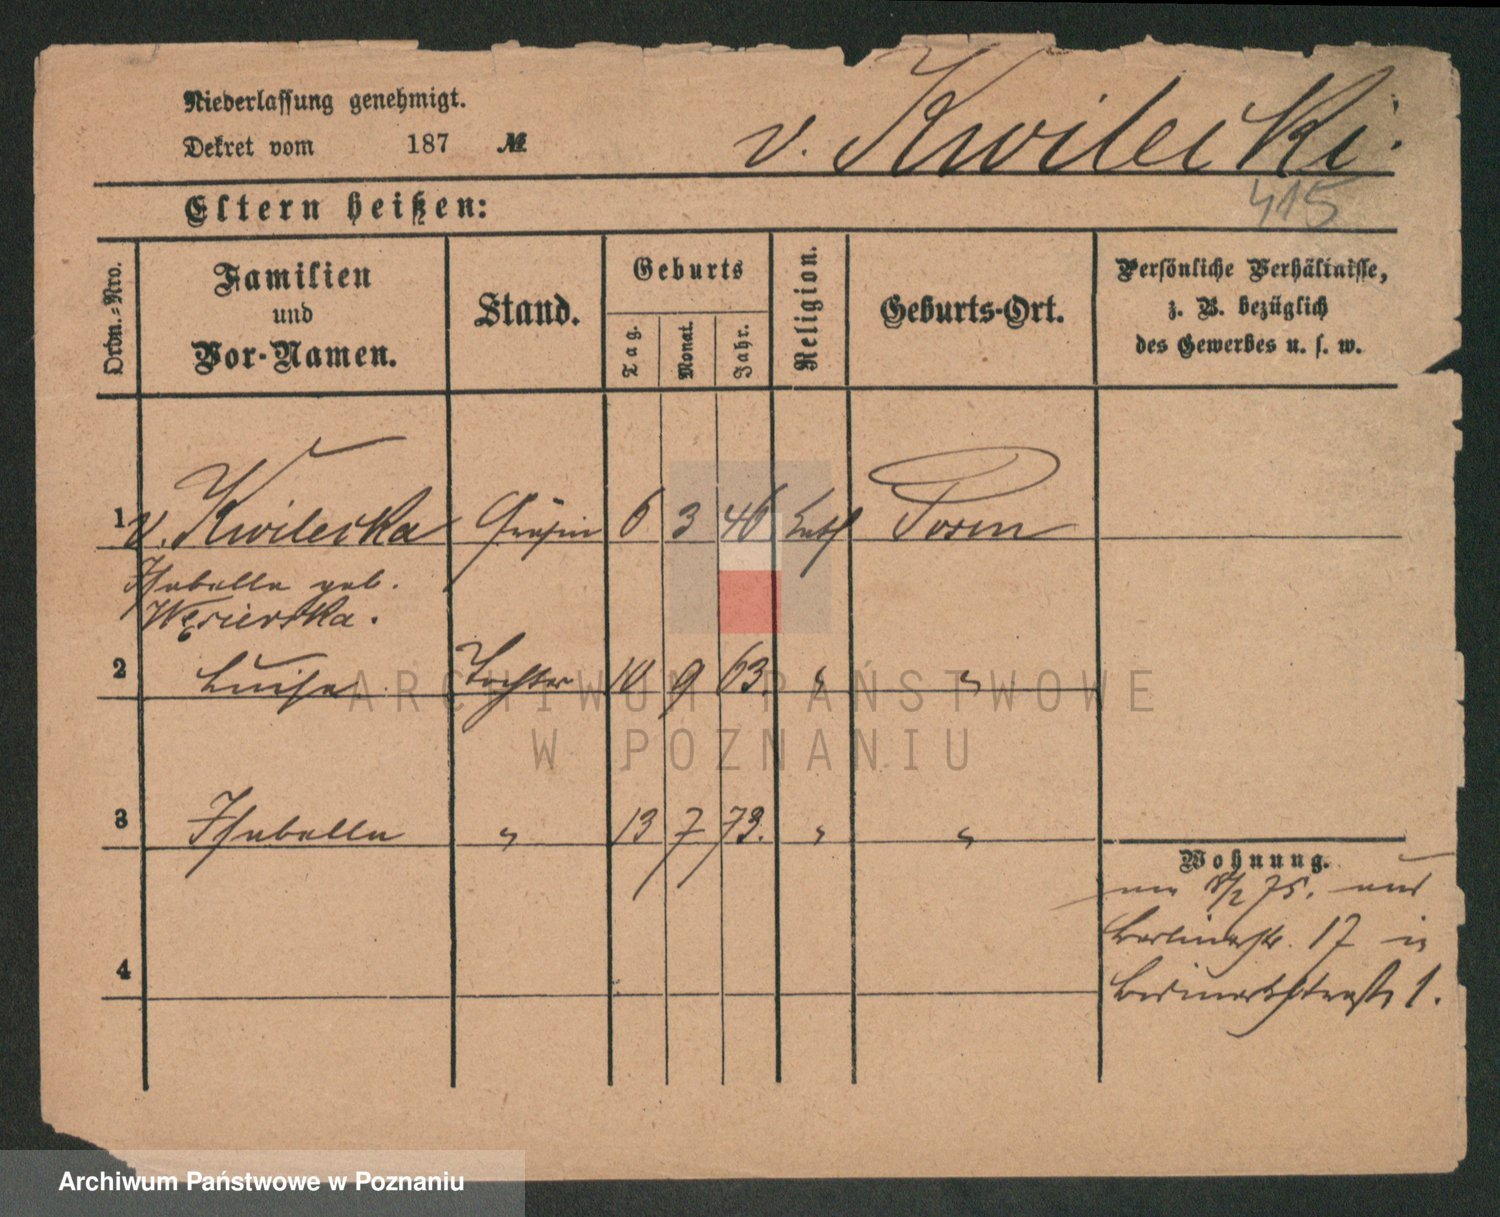 Niederlassung genehmigt.
Dekret vom 187 №
v. Kwilecki.
415
Eltern heißen:
Ordn.-Nro.
Familien
und
Vor-Namen.
Stand.
Geburts
Tag.
Monat.
Jahr.
Religion.
Geburts-Ort.
Persönliche Verhältnisse,
z. B. bezüglich
des Gewerbes u. s. w.
1 v. Kwilecka Gräfin 6 3 46 kath Posen
Isabella geb.
Węsierska.
2 Luise Tochter 10 9 63. " "
3 Isabella " 13 7 73. " "
Wohnung.
75. aus
Berlinerstr. 17 in
4
Bismarkstraße 1.
ARCHIWUM PAŃSTWOWE
W POZNANIU
Archiwum Państwowe w Poznaniu